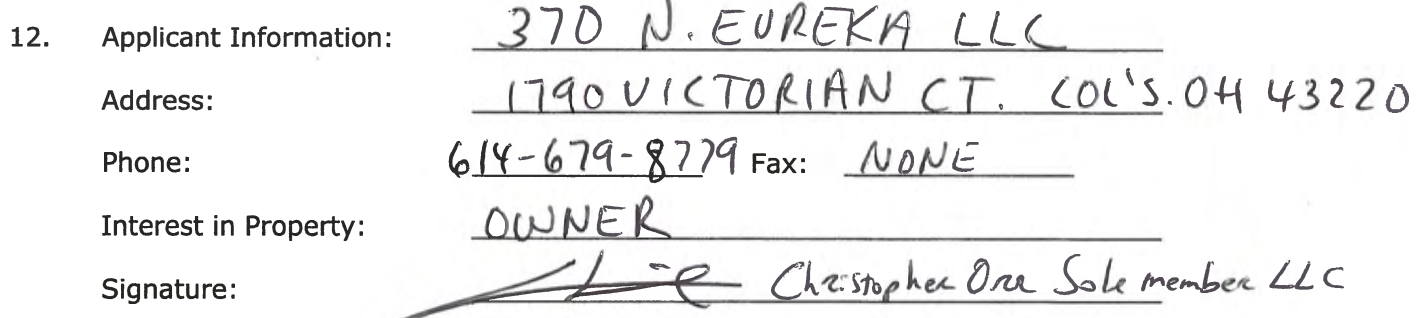 12. Applicant Information: 370 N. EUREKA LLC
Address: 1790 VICTORIAN CT. COL'S. OH 43220
Phone: 614-679-8779 Fax: NONE
Interest in Property: OWNER
Signature: Christopher Orr Sole member LLC